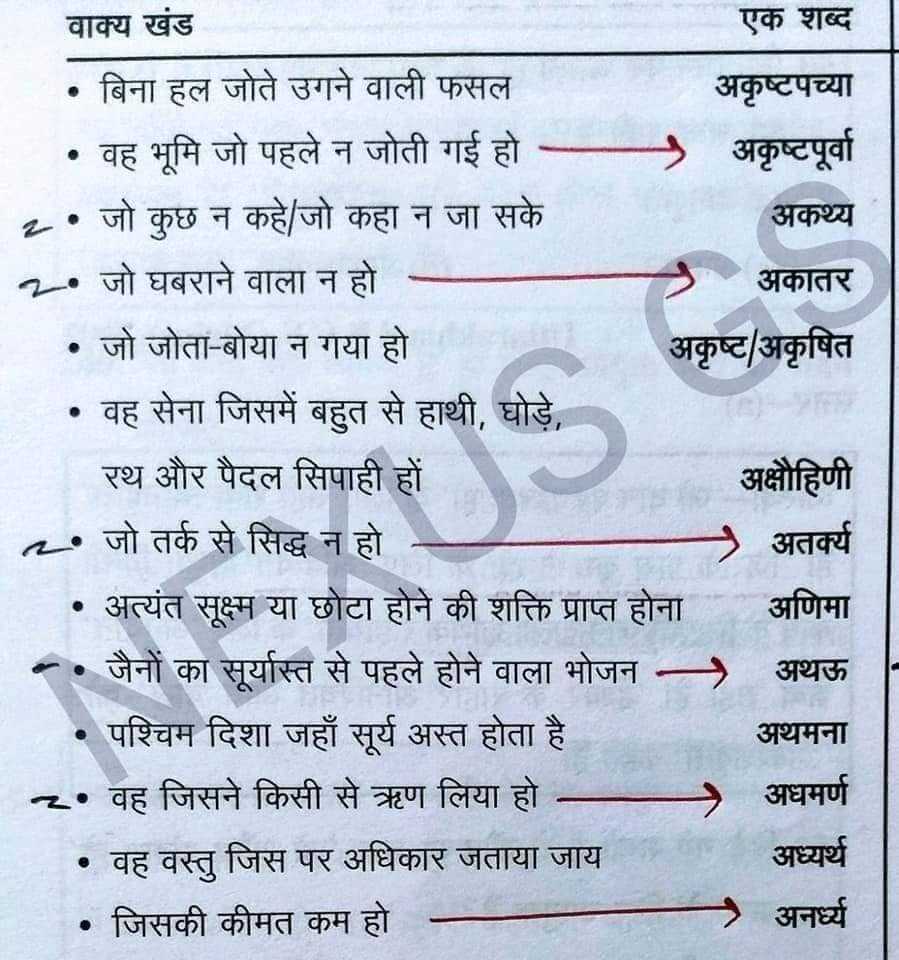 वाक्य खंड एक शब्द
• बिना हल जोते उगने वाली फसल अकृष्टपच्या
• वह भूमि जो पहले न जोती गई हो अकृष्टपूर्वा
• जो कुछ न कहे/जो कहा न जा सके अकथ्य
• जो घबराने वाला न हो अकातर
• जो जोता-बोया न गया हो अकृष्ट/अकृषित
• वह सेना जिसमें बहुत से हाथी, घोड़े,
रथ और पैदल सिपाही हों अक्षौहिणी
• जो तर्क से सिद्ध न हो अतर्क्य
• अत्यंत सूक्ष्म या छोटा होने की शक्ति प्राप्त होना अणिमा
• जैनों का सूर्यास्त से पहले होने वाला भोजन अथऊ
• पश्चिम दिशा जहाँ सूर्य अस्त होता है अथमना
• वह जिसने किसी से ऋण लिया हो अधमर्ण
• वह वस्तु जिस पर अधिकार जताया जाय अध्यर्थ
• जिसकी कीमत कम हो अनर्ध्य
NEXUS GS